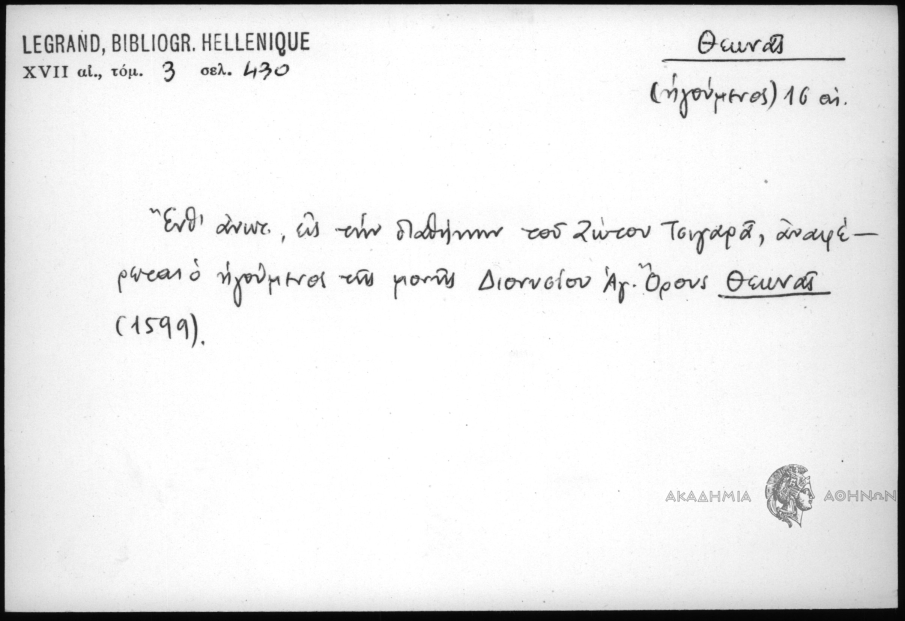 LEGRAND, BIBLIOGR. HELLENIQUE
XVII αἰ., τόμ. 3 σελ. 430
Θεωνᾶς
(ἡγούμενος) 16 αἰ.
Ἔνθ' ἀνωτ., εἰς τὴν διαθήκην τοῦ Ζώτου Τσιγαρᾶ, ἀναφέ-
ρεται ὁ ἡγούμενος τῆς μονῆς Διονυσίου Ἁγ. Ὄρους Θεωνᾶς
(1599).
ΑΚΑΔΗΜΙΑ ΑΘΗΝΩΝ